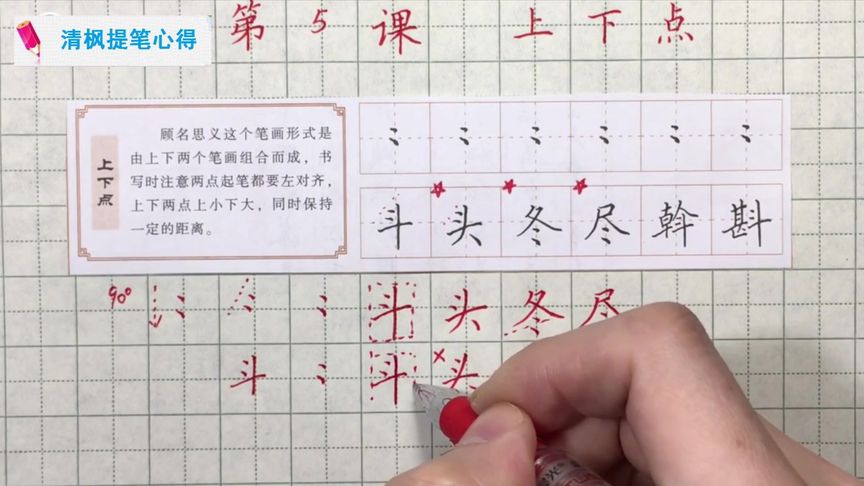 清枫提笔心得
第5课 上下点
上下点
顾名思义这个笔画形式是
由上下两个笔画组合而成，书
写时注意两点起笔都要左对齐，
上下两点上小下大，同时保持
一定的距离。
斗 头 冬 尽 斡 斟
90°
斗 头 冬 尽
斗 斗 头